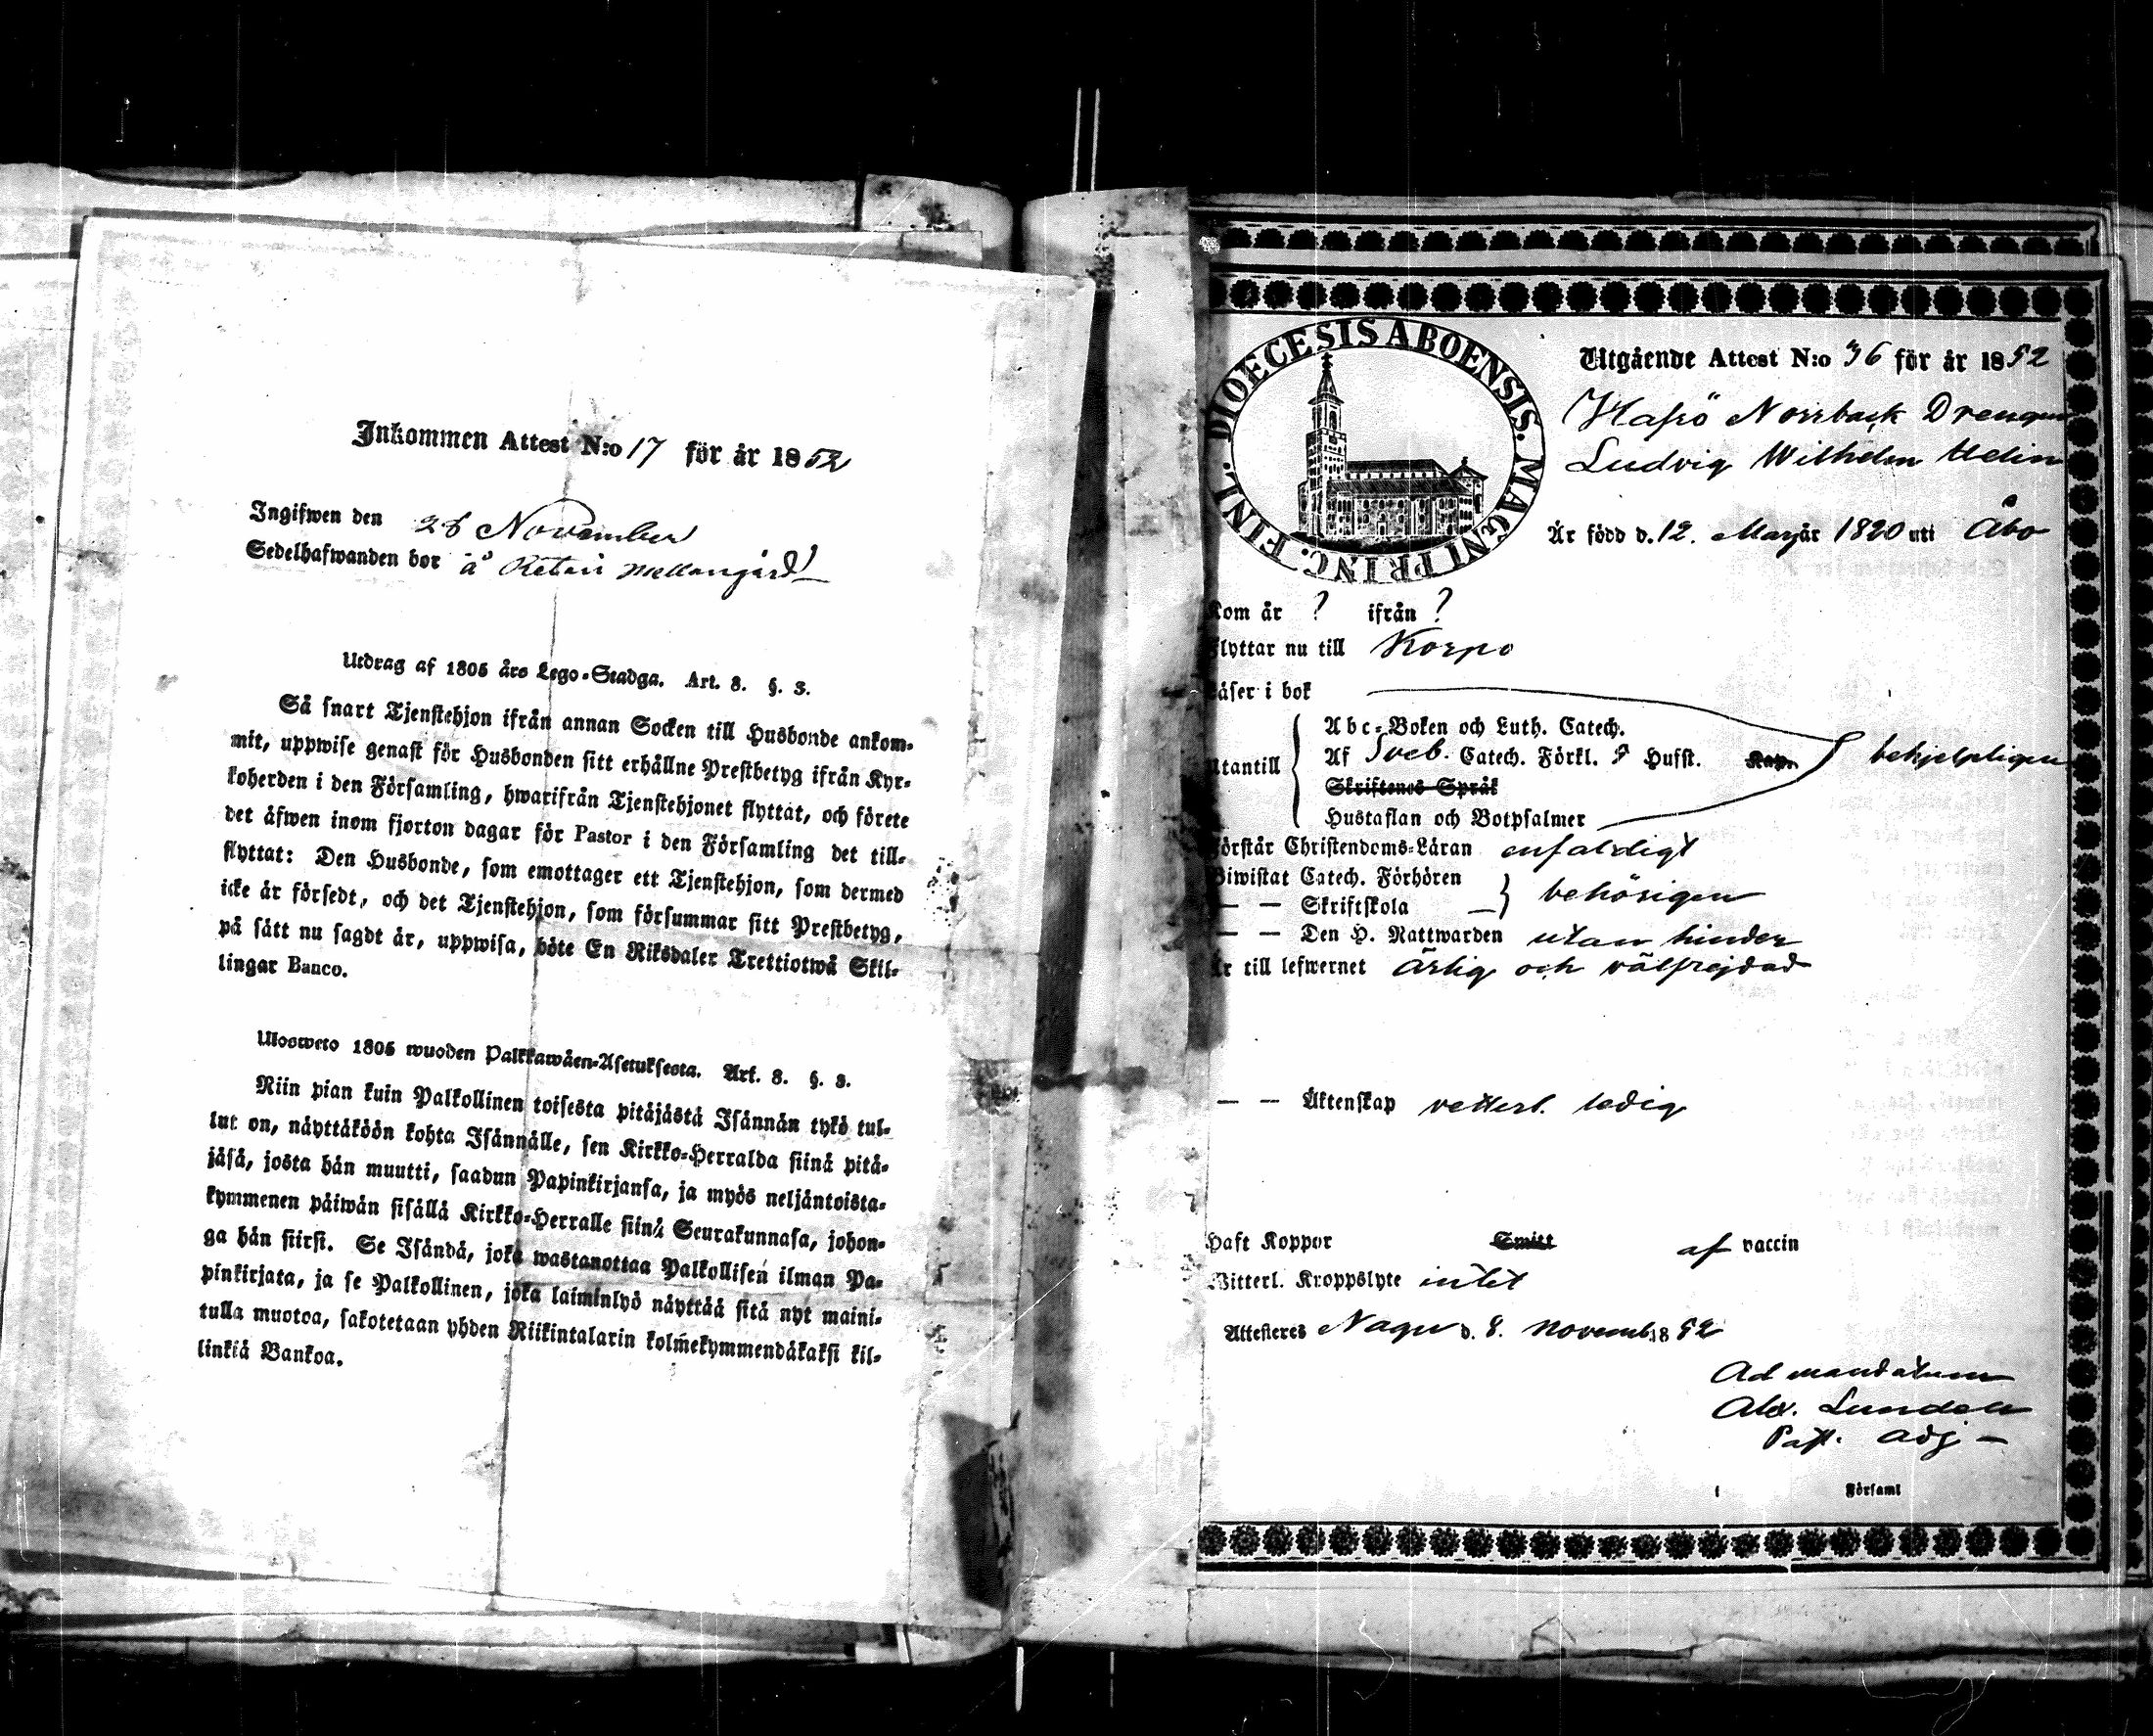 Inkommen Attest N:o 17 för år 1852
Ingifwen den 28 November
Sedelhafwanden bor å Retais Mellangård
Utdrag af 1805 års Lego-Stadga. Art. 8. §. 3.
Så snart Tjenstehjon ifrån annan Socken till Husbonde ankom-
mit, uppwise genast för Husbonden sitt erhållne Prestbetyg ifrån Kyr-
koherden i den Församling, hwarifrån Tjenstehjonet flyttat, och förete
det äfwen inom fjorton dagar för Pastor i den Församling det till-
flyttat: Den Husbonde, som emottager ett Tjenstehjon, som dermed
icke är försedt, och det Tjenstehjon, som försummar sitt Prestbetyg,
på sätt nu sagdt är, uppwisa, böte En Riksdaler Trettiotwå Skil-
lingar Banco.
Ulosweto 1805 wuoden Palkkawäen-Asetuksesta. Art. 8. §. 3.
Niin pian kuin Palkollinen toisesta pitäjästä Isännän tykö tul-
lut on, näyttäköön kohta Isännälle, sen Kirkko-Herralda siinä pitä-
jäsä, josta hän muutti, saadun Papinkirjansa, ja myös neljäntoista-
kymmenen päiwän sisällä Kirkko-Herralle siinä Seurakunnasa, johon-
ga hän siirsi. Se Isändä, joka wastanottaa Palkollisen ilman Pa-
pinkirjata, ja se Palkollinen, joka laiminlyö näyttää sitä nyt maini-
tulla muotoa, sakotetaan yhden Riikintalarin kolmekymmendäkaksi kil-
linkiä Bankoa.
DIOECESIS ABOENSIS. MAGNI PRINC. FINL.
Utgående Attest N:o 36 för år 1852
Norrback Drengen
Ludvig Wilhelm
Är född d. 12. Maj år 1820 uti Åbo
Kom år ? ifrån ?
Flyttar nu till Korpo
Läser i bok
Abc-Boken och Luth. Catech.
Utantill Af Sveb. Catech. Förkl. Hufst. Kap. behjelpligen
Skriftenes Språk
Hustaflan och Botpsalmer
Förstår Christendoms-Läran enfaldigt
Biwistat Catech. Förhören
— — Skriftskola — behörigen
— — Den H. Nattwarden utan hinder
Är till lefwernet ärlig och välfrejdad
— — Äktenskap vetterl. ledig
Haft Koppor Smitt af vaccin
Witterl. Kroppslyte intet
Attesteras Nagu d. 8. Novemb. 1852
Ad mandatum
Alex. Lundell
Past. Adj —
i Församl